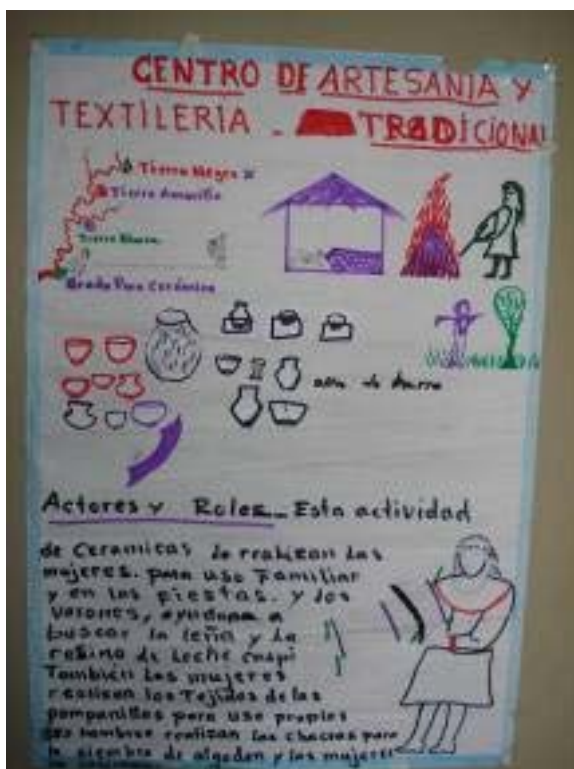 CENTRO DE ARTESANIA Y
TEXTILERIA - TRADICIONAL
Tierra Negra
Tierra Amarilla
Tierra Blanca
Greda Para Cerámica
olla de barro
Actores y Roles - Esta actividad
de Ceramicas lo realizan las
mujeres. para uso Familiar
y en las fiestas. y los
varones, ayudan a
buscar la leña y la
resina de Leche caspi
También las mujeres
realizan los Tejidos de las
pampanillas para uso propios
los hombre realizan las chacras para
la siembra de algodon y las mujeres